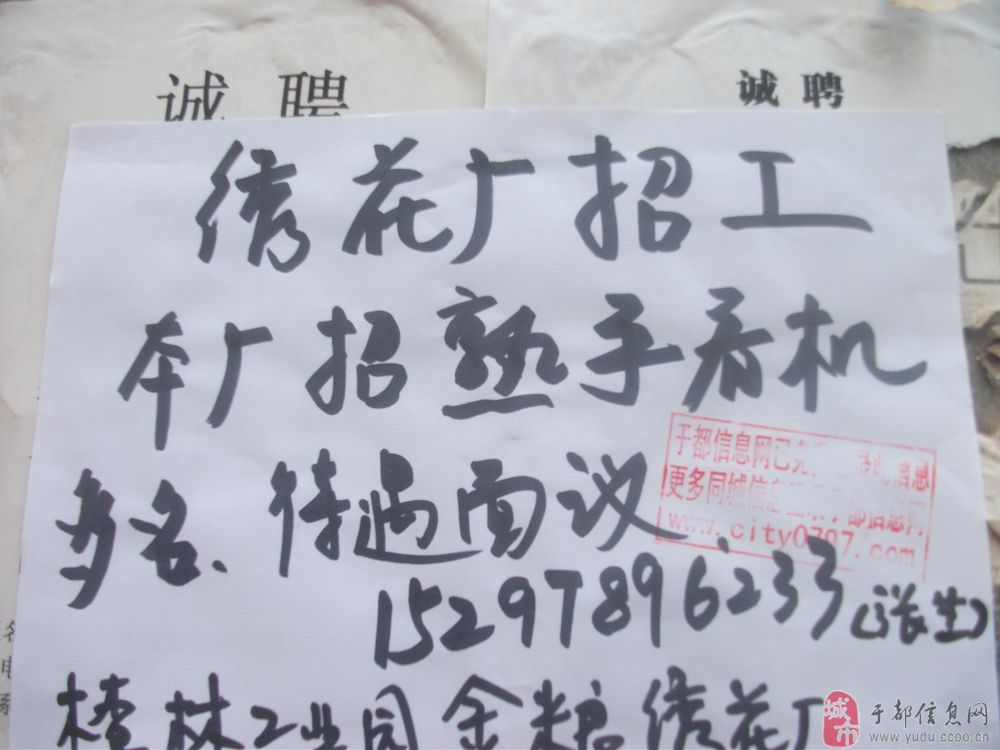 诚聘
诚聘
绣花厂招工
本厂招熟手看机
多名、待遇面议
于都信息网已免 此信息
更多同城信息 都信息网
www.city0797.com
15297896233(张生)
楂林工业园金糖绣花厂
名
电
城市 于都信息网
www.yudu.ccoo.cn